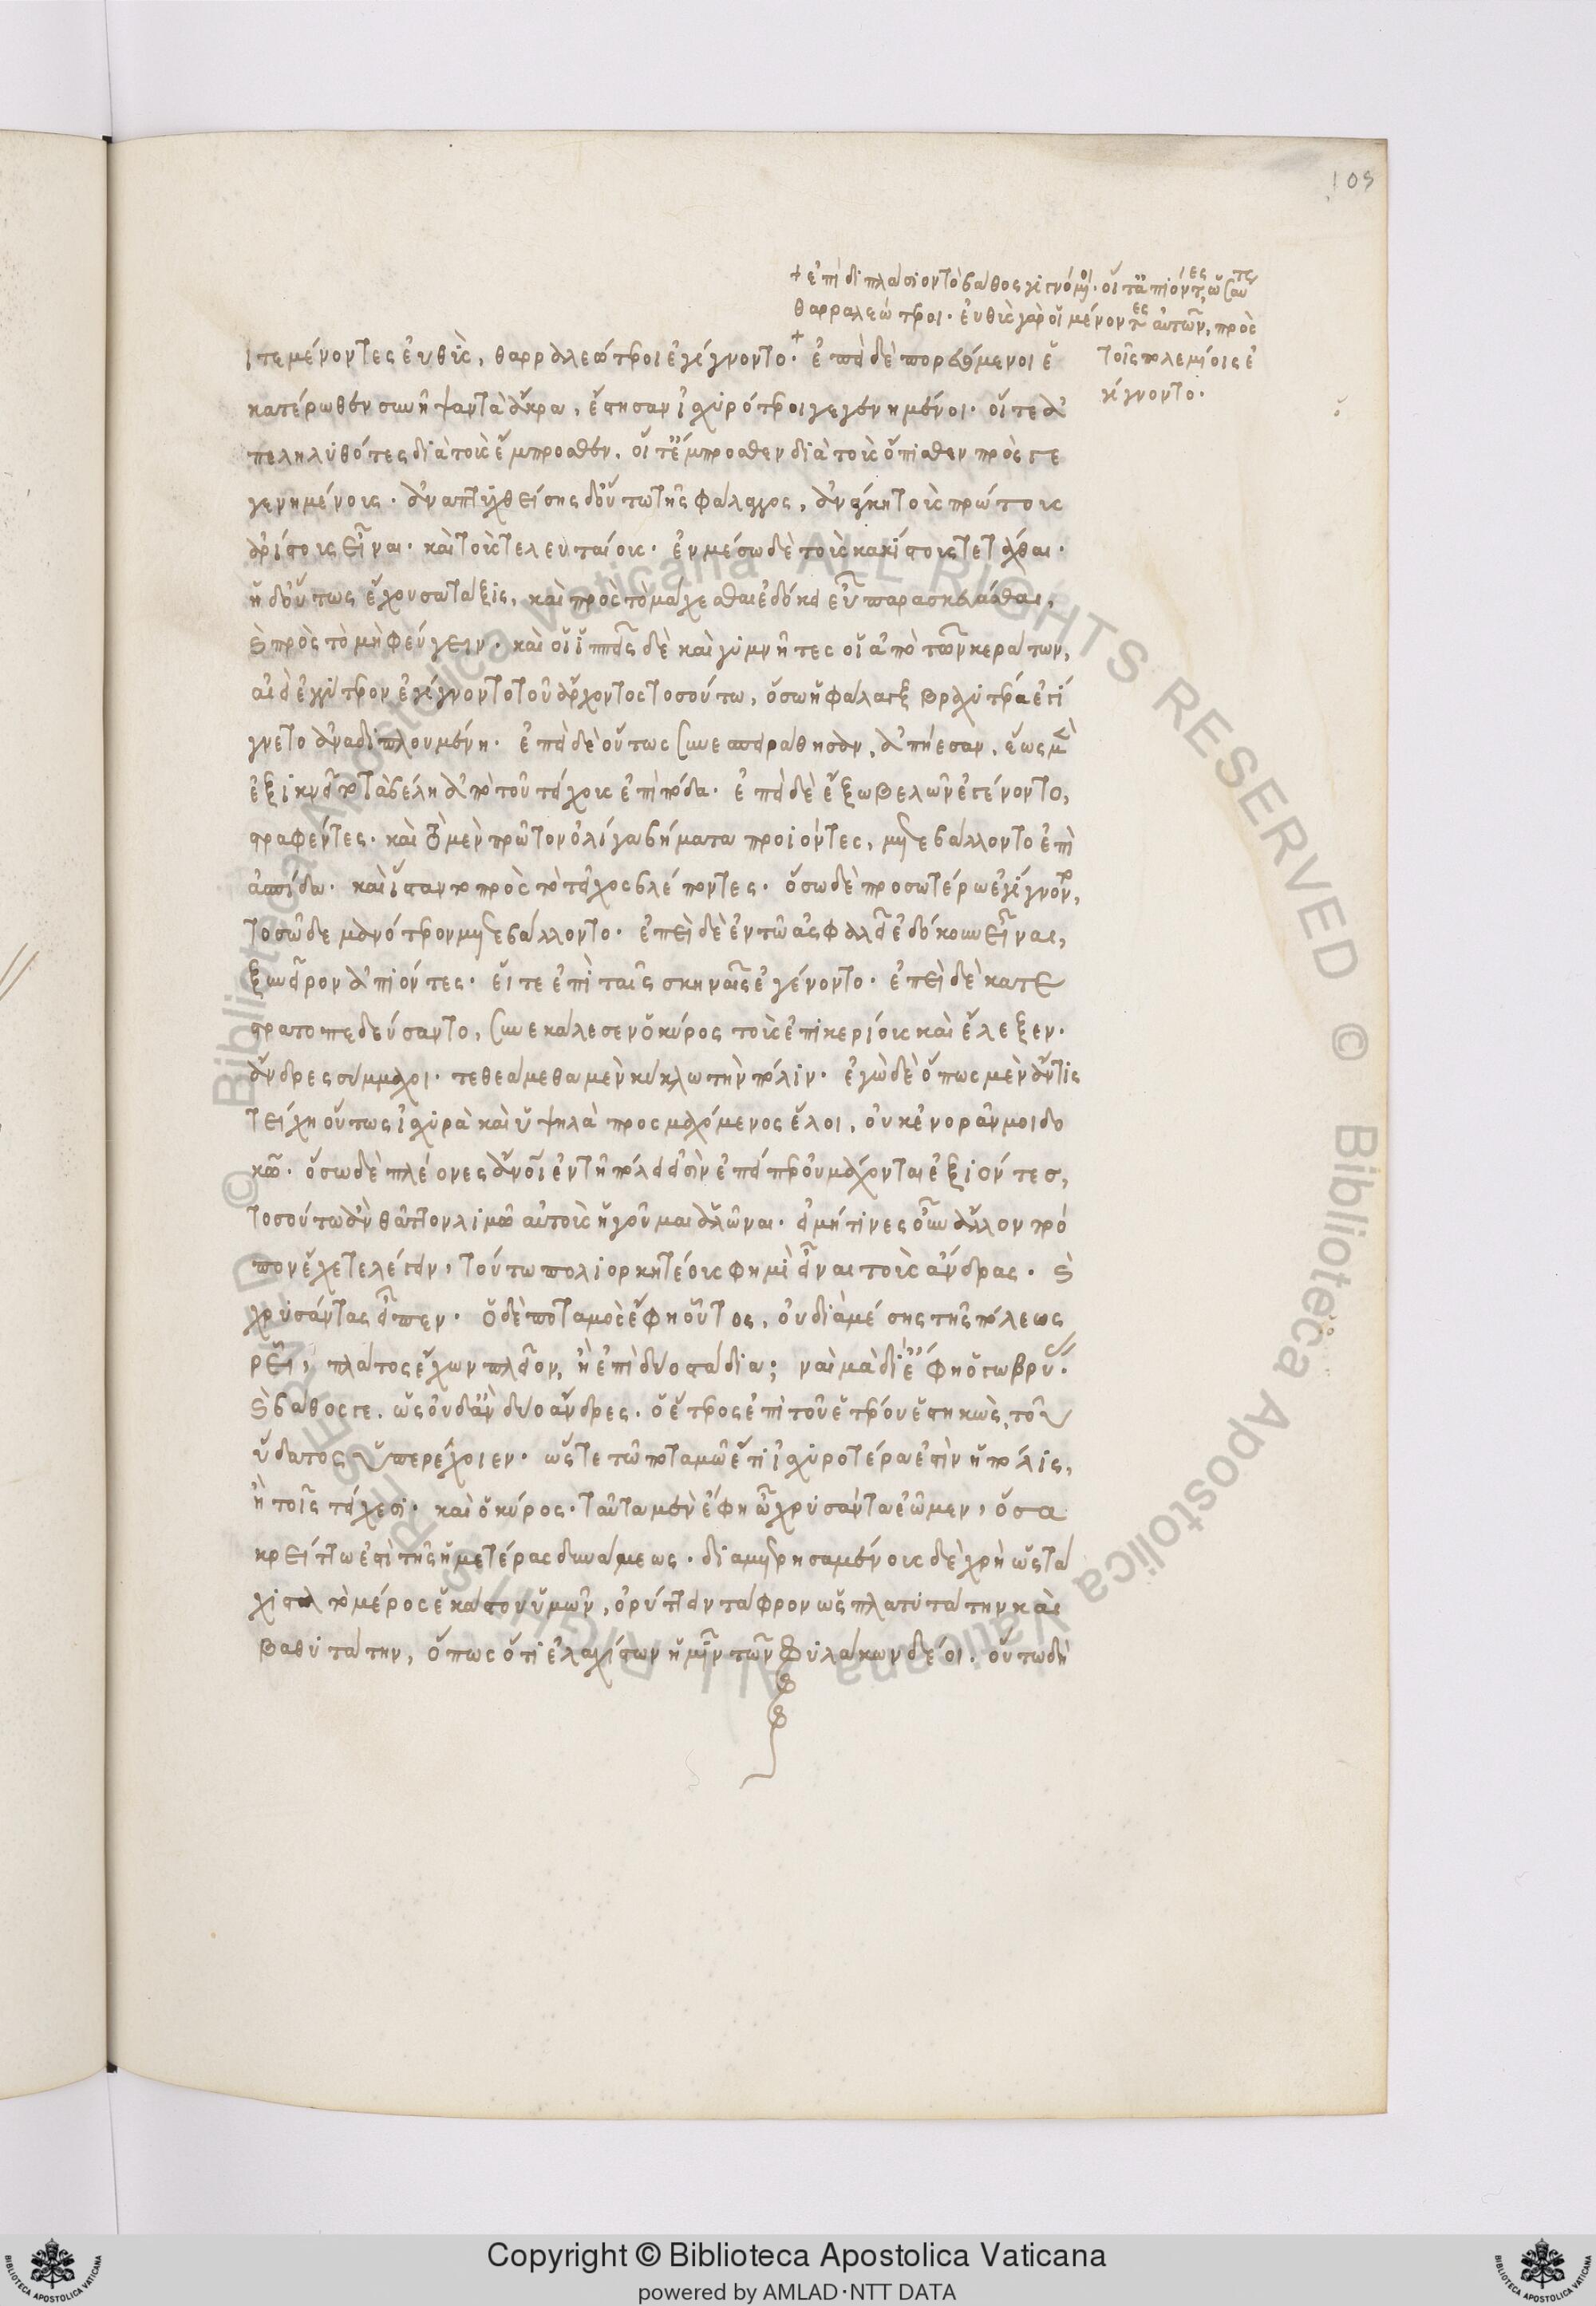 109
+ ἐπὶ διπλάσιον τὸ βάθος γιγνόμενοι· οἵ τ' ἀπιόντες ὡσαύτως
θαρραλεώτεροι· εὐθὺς γὰρ οἱ μένοντες αὐτῶν, πρὸς
τοῖς πολεμίοις ἐ
γίγνοντο.
ι τε μένοντες εὐθὺς, θαρραλεώτεροι ἐγίγνοντο. + ἐπεὶ δὲ πορευόμενοι ἑ
κατέρωθεν συνῆψαν τὰ ἄκρα, ἔστησαν ἰσχυρότεροι γεγενημένοι. οἵ τε ἀ
πεληλυθότες διὰ τοὺς ἔμπροσθεν, οἵ τ' ἔμπροσθεν διὰ τοὺς ὄπισθεν προσγε
γενημένους. ἀναπτυχθείσης δ' οὕτω τῆς φάλαγγος, ἀνάγκη τοὺς πρώτους
ἀρίστους εἶναι. καὶ τοὺς τελευταίους. ἐν μέσω δὲ τοὺς κακίστους τετάχθαι.
ἡ δ' οὕτως ἔχουσα τάξις, καὶ πρὸς τὸ μάχεσθαι ἐδόκει εὖ παρασκευάσθαι,
καὶ πρὸς τὸ μὴ φεύγειν. καὶ οἱ ἱππεῖς δὲ καὶ γυμνῆτες οἱ ἀπὸ τῶν κεράτων,
αἰεὶ ἐγγύτερον ἐγίγνοντο τοῦ ἄρχοντος τοσούτω, ὅσω ἡ φάλαγξ βραχυτέρα ἐγί
γνετο ἀναδιπλουμένη. ἐπεὶ δὲ οὕτως συνεσπειράθησαν, ἀπῄεσαν, ἕως μὲν
ἐξικνεῖτο τὰ βέλη ἀπὸ τοῦ τείχους ἐπὶ πόδα. ἐπεὶ δὲ ἔξω βελῶν ἐγένοντο,
στραφέντες. καὶ τὸ μὲν πρῶτον ὀλίγα βήματα προιόντες, μετεβάλλοντο ἐπὶ
ἀσπίδα. καὶ ἵσταντο πρὸς τὸ τεῖχος βλέποντες. ὅσω δὲ προσωτέρω ἐγίγνοντο,
τοσῶδε μανότερον μετεβάλλοντο. ἐπεὶ δὲ ἐν τῶ ἀσφαλεῖ ἐδόκουν εἶναι,
ξυνεῖρον ἀπιόντες. ἔστε ἐπὶ ταῖς σκηναῖς ἐγένοντο. ἐπεὶ δὲ κατε
στρατοπεδεύσαντο, συνεκάλεσεν ὁ κύρος τοὺς ἐπικερίους καὶ ἔλεξεν.
ἄνδρες σύμμαχοι. τεθεάμεθα μὲν κύκλω τὴν πόλιν. ἐγὼ δὲ ὅπως μὲν ἄν τις
τείχη οὕτως ἰσχυρὰ καὶ ὑψηλὰ προσμαχόμενος ἕλοι, οὐκ ἐνορᾶν μοι δο
κῶ. ὅσω δὲ πλέονες ἄνοι ἐν τῆ πόλει εἰσὶν ἐπείπερ οὐ μάχονται ἐξιόντες,
τοσούτω ἂν θᾶττον λιμῶ αὐτοὺς ἡγοῦμαι ἁλῶναι. εἰ μή τινες οὖν ἄλλον τρό
πον ἔχετε λέγειν, τούτω πολιορκητέους φημὶ εἶναι τοὺς ἄνδρας. καὶ
χρυσάντας εἶπεν. ὁ δὲ ποταμὸς ἔφη οὗτος, οὐ διὰ μέσης τῆς πόλεως
ρεῖ, πλάτος ἔχων πλεῖον, ἢ ἐπὶ δύο στάδια; ναὶ μὰ δί' ἔφη ὁ γωβρύας.
καὶ βάθος γε. ὡς οὐδ' ἂν δύο ἄνδρες. ὁ ἕτερος ἐπὶ τοῦ ἑτέρου ἑστηκὼς, τοῦ
ὕδατος ὑπερέχοιεν. ὥστε τῶ ποταμῶ ἔτι ἰσχυροτέρα ἐστὶν ἡ πόλις,
ἢ τοῖς τείχεσι. καὶ ὁ κύρος. ταῦτα μὲν ἔφη ὦ χρυσάντα ἐῶμεν, ὅσα
κρείττω ἐστὶ τῆς ἡμετέρας δυνάμεως. διαμετρησαμένους δὲ χρὴ ὡς τά
χιστα τὸ μέρος ἕκαστον ὑμῶν, ὀρύττειν τάφρον ὡς πλατυτάτην καὶ
βαθυτάτην, ὅπως ὅτι ἐλαχίστων ἡμῖν τῶν φυλάκων δέοι. οὕτω δὴ
Copyright © Biblioteca Apostolica Vaticana
powered by AMLAD·NTT DATA